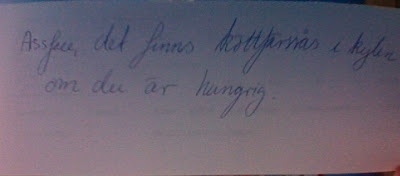 Assfee, det finns köttfärssås i kylen
om du är hungrig.